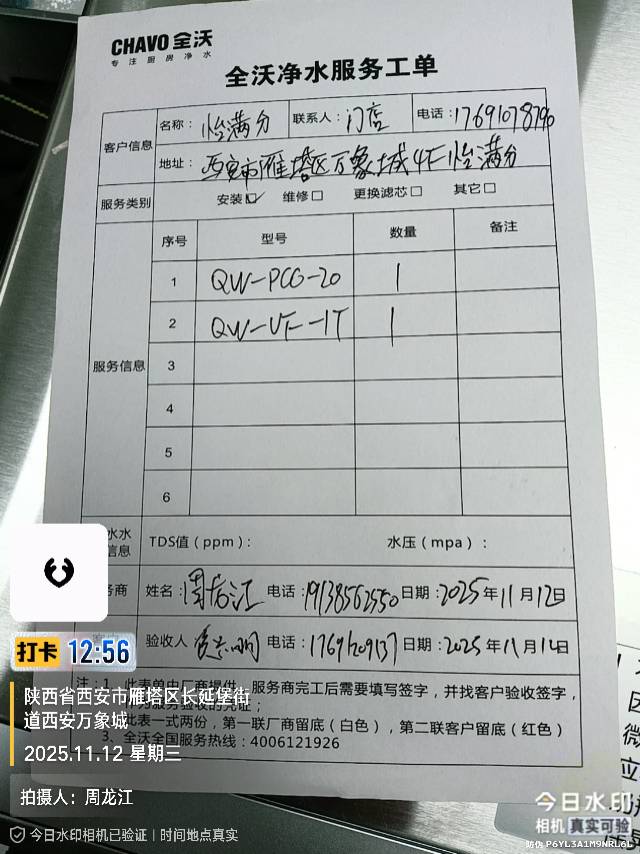 CHAVO 全沃
专注厨房净水
全沃净水服务工单
客户信息
名称：怡满分
联系人：门店
电话：17691078790
地址：西安市雁塔区万象城4F怡满分
服务类别
安装☑ 维修□ 更换滤芯□ 其它□
服务信息
序号 型号 数量 备注
1 QW-PCG-20 1
2 QW-UF-1T 1
3
4
5
6
水水
信息
TDS值（ppm）： 水压（mpa）：
务商
姓名：周龙江 电话：19138562550 日期：2025年11月12日
验收人 电话： 日期：2025年11月12日
注：1、此表单由厂商提供，服务商完工后需要填写签字，并找客户验收签字，
作为服务验收的凭证；
此表一式两份，第一联厂商留底（白色），第二联客户留底（红色）
3、全沃全国服务热线：4006121926
打卡 12:56
陕西省西安市雁塔区长延堡街
道西安万象城
2025.11.12 星期三
拍摄人：周龙江
今日水印相机已验证｜时间地点真实
今日水印
相机 真实可验
防伪 P6YL3A1M9NRL6L
微
立